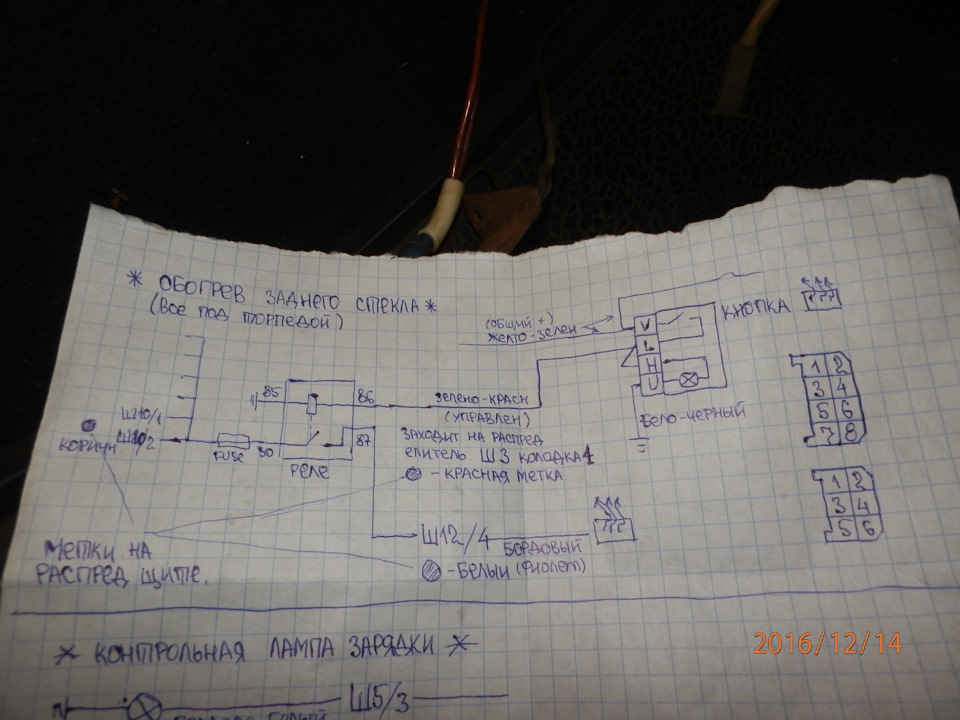 * ОБОГРЕВ ЗАДНЕГО СТЕКЛА *
(ВСЕ ПОД ТОРПЕДОЙ)
(ОБЩИЙ +)
ЖЕЛТО-ЗЕЛЕН
V
L
H
U
КНОПКА
БЕЛО-ЧЕРНЫЙ
Ш10/1
КОРИЧН Ш10/2
FUSE
30
85
86
87
РЕЛЕ
ЗЕЛЕНО-КРАСН
(УПРАВЛЕН)
ЗАХОДИТ НА РАСПРЕД
ЕЛИТЕЛЬ Ш3 КОЛОДКА 1
- КРАСНАЯ МЕТКА
Ш12/4 БОРДОВЫЙ
- БЕЛЫЙ (ФИОЛЕТ)
МЕТКИ НА
РАСПРЕД ЩИТЕ.
1 2
3 4
5 6
7 8
1 2
3 4
5 6
* КОНТРОЛЬНАЯ ЛАМПА ЗАРЯДКИ *
Ш5/3
2016/12/14